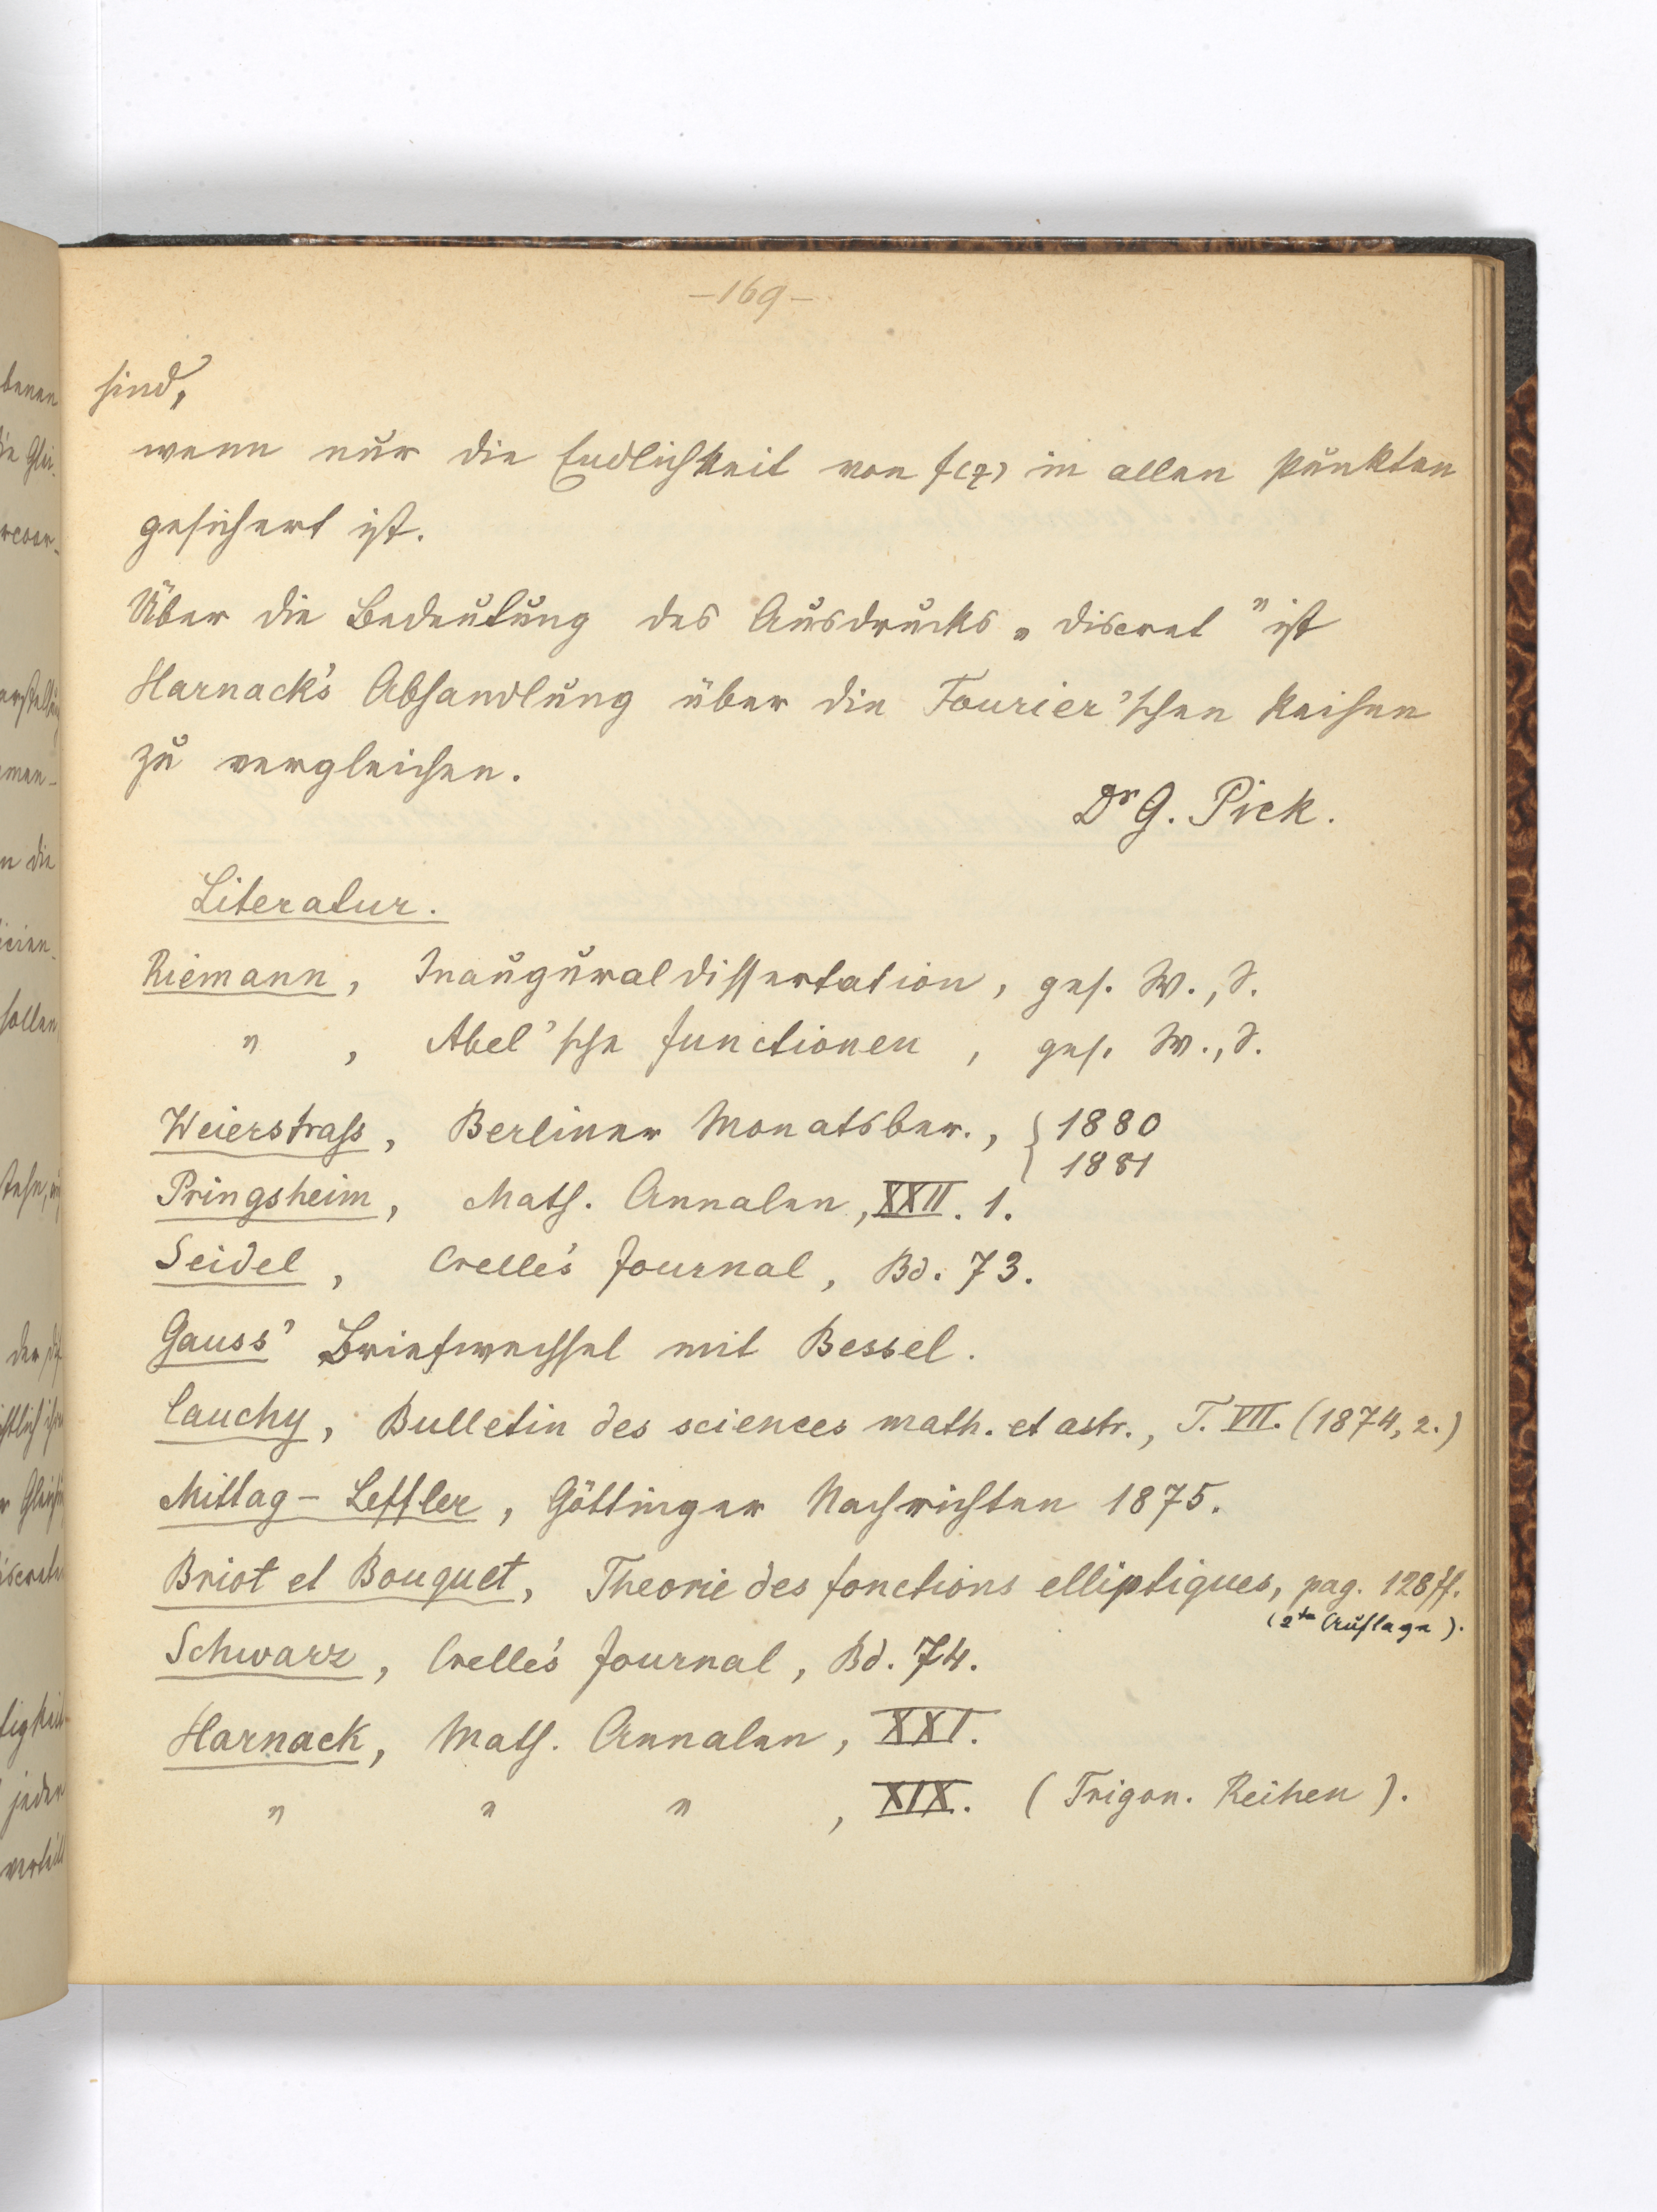 -169-
sind,
wenn nur die Endlichkeit von f(z) in allen Punkten
gesichert ist.
Über die Bedeutung des Ausdrucks „discret" ist
Harnack's Abhandlung über die Fourier'schen Reihen
zu vergleichen.
Dr G. Pick.
Literatur.
Riemann, Inauguraldissertation, ges. W., S.
" , Abel'sche Functionen, ges. W., S.
Weierstrass, Berliner Monatsber., { 1880
1881
Pringsheim, Math. Annalen, XXII. 1.
Seidel, Crelle's Journal, Bd. 73.
Gauss' Briefwechsel mit Bessel.
Cauchy, Bulletin des sciences math. et astr., T. VII. (1874, 2.)
Mittag-Leffler, Göttinger Nachrichten 1875.
Briot et Bouquet, Theorie des fonctions elliptiques, pag. 128 ff.
(2te Auflage).
Schwarz, Crelle's Journal, Bd. 74.
Harnack, Math. Annalen, XXI.
" " " , XIX. (Trigon. Reihen).